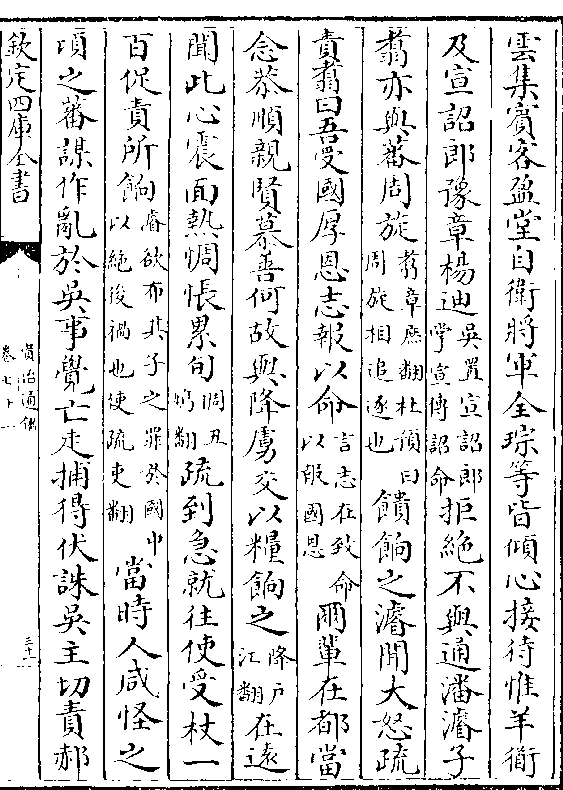 雲集賓客盈堂自衛將軍全琮等皆傾心接待惟羊衜
及宣詔郎豫章楊迪吳置宣詔郎掌宣傳詔命拒絶不與通潘濬子
翥亦與蕃周旋翥章庶翻杜預曰周旋相追逐也饋餉之濬聞大怒疏
責翥曰吾受國厚恩志報以命言志在致命以報國恩爾輩在都當
念恭順親賢慕善何故與降虜交以糧餉之降戶江翻在遠
聞此心震面熱惆悵累旬惆丑鳩翻疏到急就往使受杖一
百促責所餉濬欲布其子之罪於國中以絶後禍也使疏吏翻當時人咸怪之
頃之蕃謀作亂於吳事覺亡走捕得伏誅吳主切責郝
欽定四庫全書
資治通鑑
卷七十一
三十一